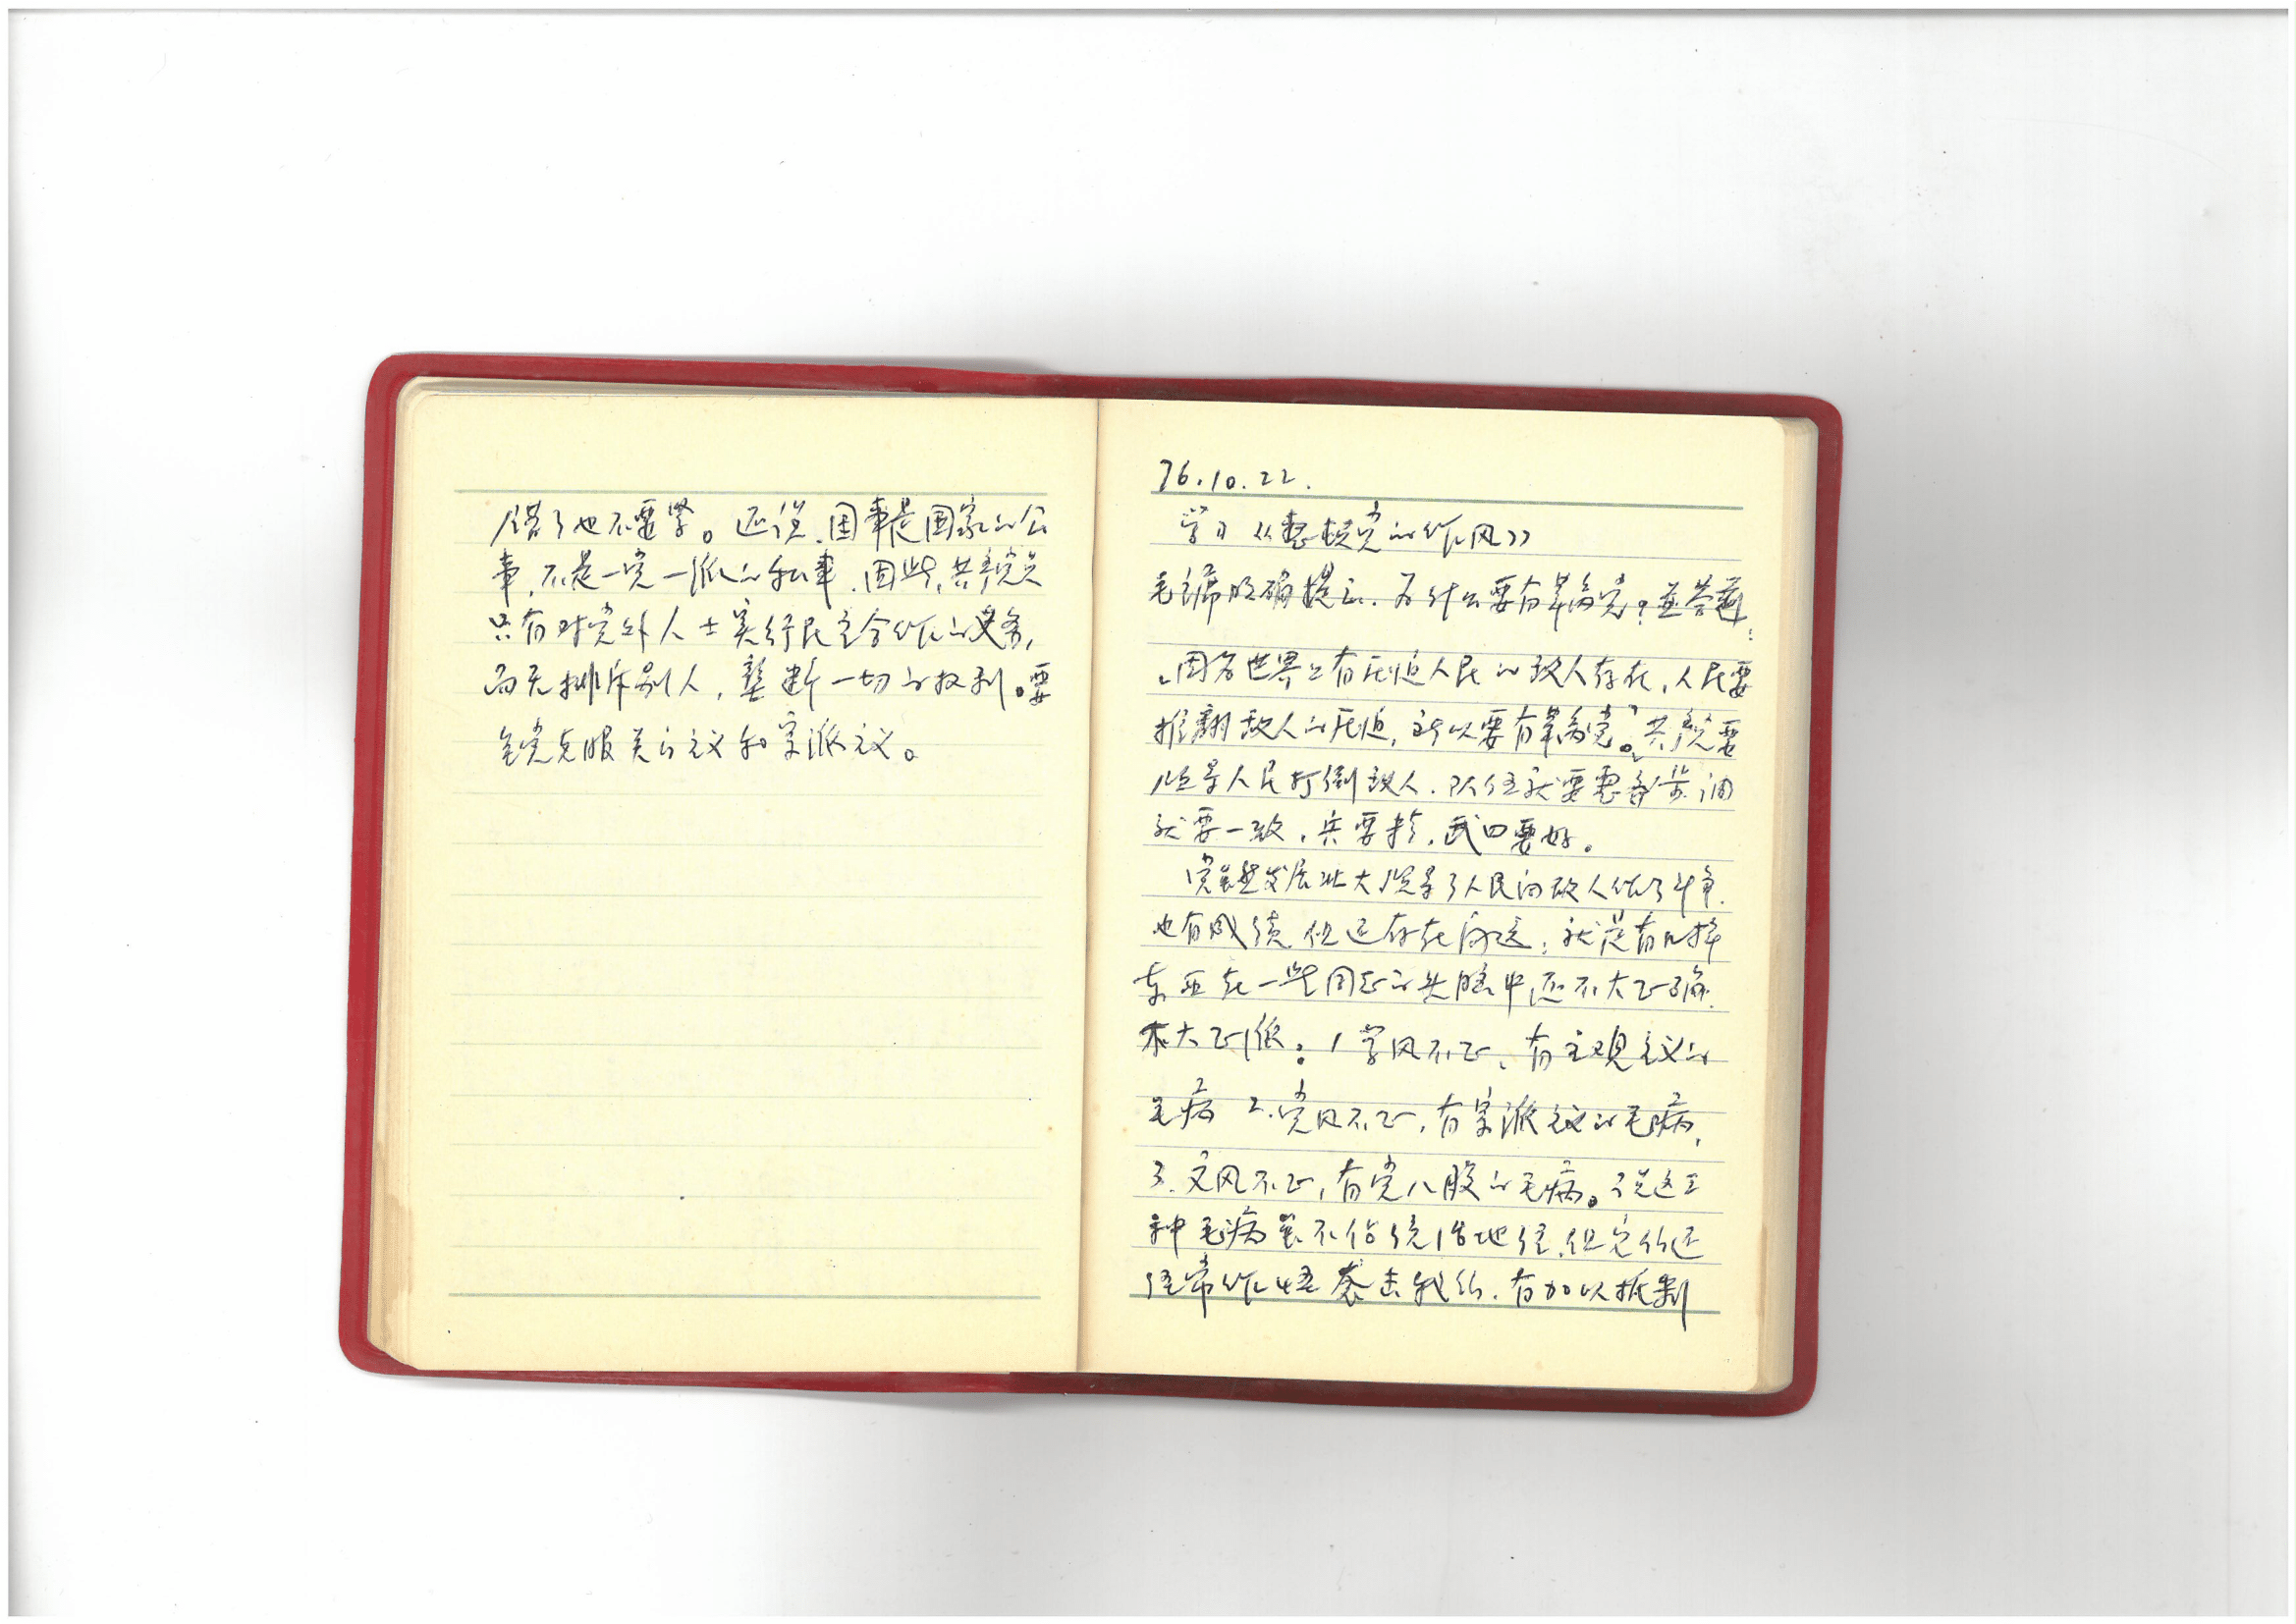 错了也不要紧。还说,国事是国家的公
事,不是一党一派的私事。因此,共产党员
只有对党外人士实行民主合作的义务,
而无排斥别人,垄断一切的权利。要
全党克服关门主义和宗派主义。
76.10.22.
学习《整顿党的作风》
毛主席明确提出,为什么要有革命党?並答道:
"因为世界上有压迫人民的敌人存在,人民要
推翻敌人的压迫,所以要有革命党"。共产党要
领导人民打倒敌人,队伍就要整齐步调
就要一致,兵要精,武口要好。
党虽然发展壮大,领导了人民同敌人作了斗争,
也有成绩,但还存在问题,就是有几样
东西在一些同志的头脑中还不大正确,
不大正派:1学风不正,有主观主义的
毛病 2.党风不正,有宗派主义的毛病,
3.文风不正,有党八股的毛病。说这三
种毛病虽不佔统治地位,但它们还
经常作怪袭击我们,有加以抵制